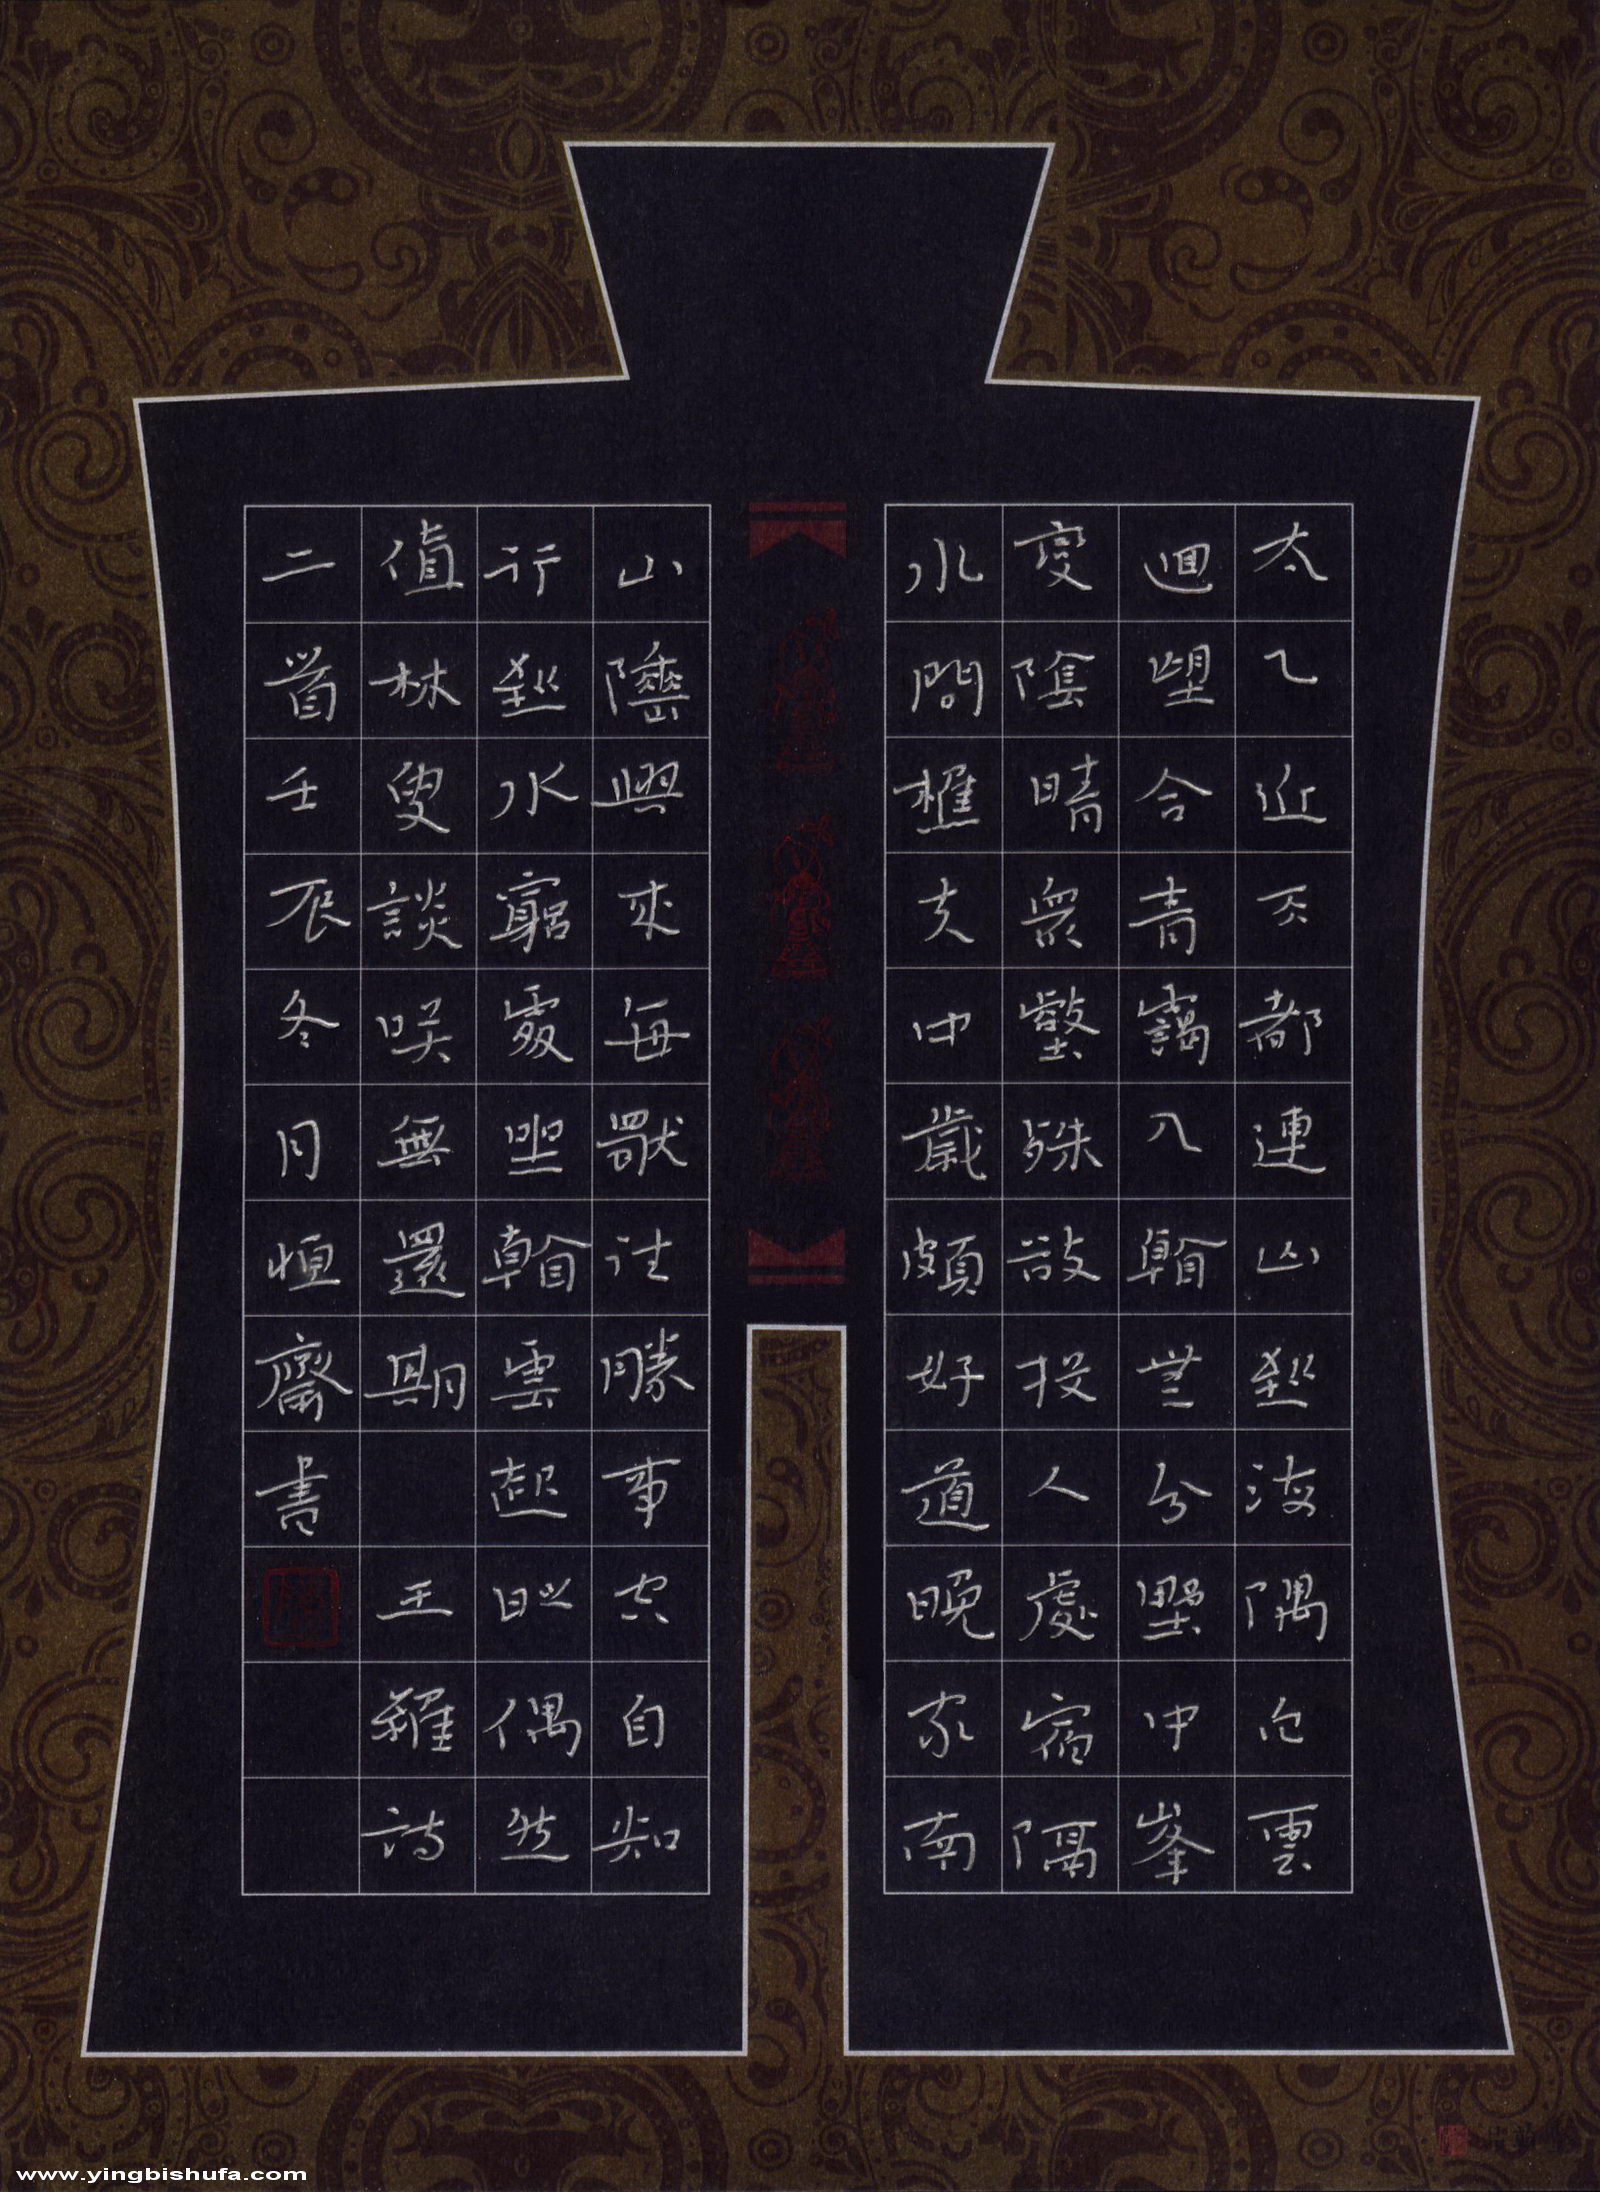 太乙近天都連山到海隅白雲
迴望合青靄入看無分壄中峯
變陰晴衆壑殊欲投人處宿隔
水問樵夫中歲頗好道晚家南
山陲興來每獨往勝事空自知
行到水窮處坐看雲起時偶然
值林叟談咲無還期 王維詩
二首壬辰冬月恒齋書
www.yingbishufa.com